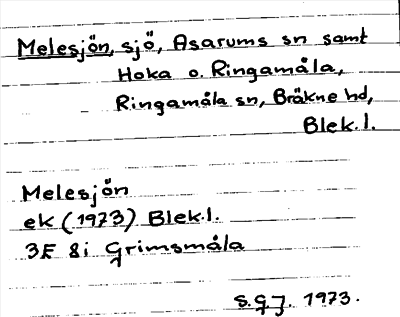 Melesjön, sjö, Asarums sn samt
Hoka o. Ringamåla,
Ringamåla sn, Bräkne hd,
Blek.l.
Melesjön
ek (1973) Blek.l.
3E 8i Grimsmåla
S.G.J. 1973.